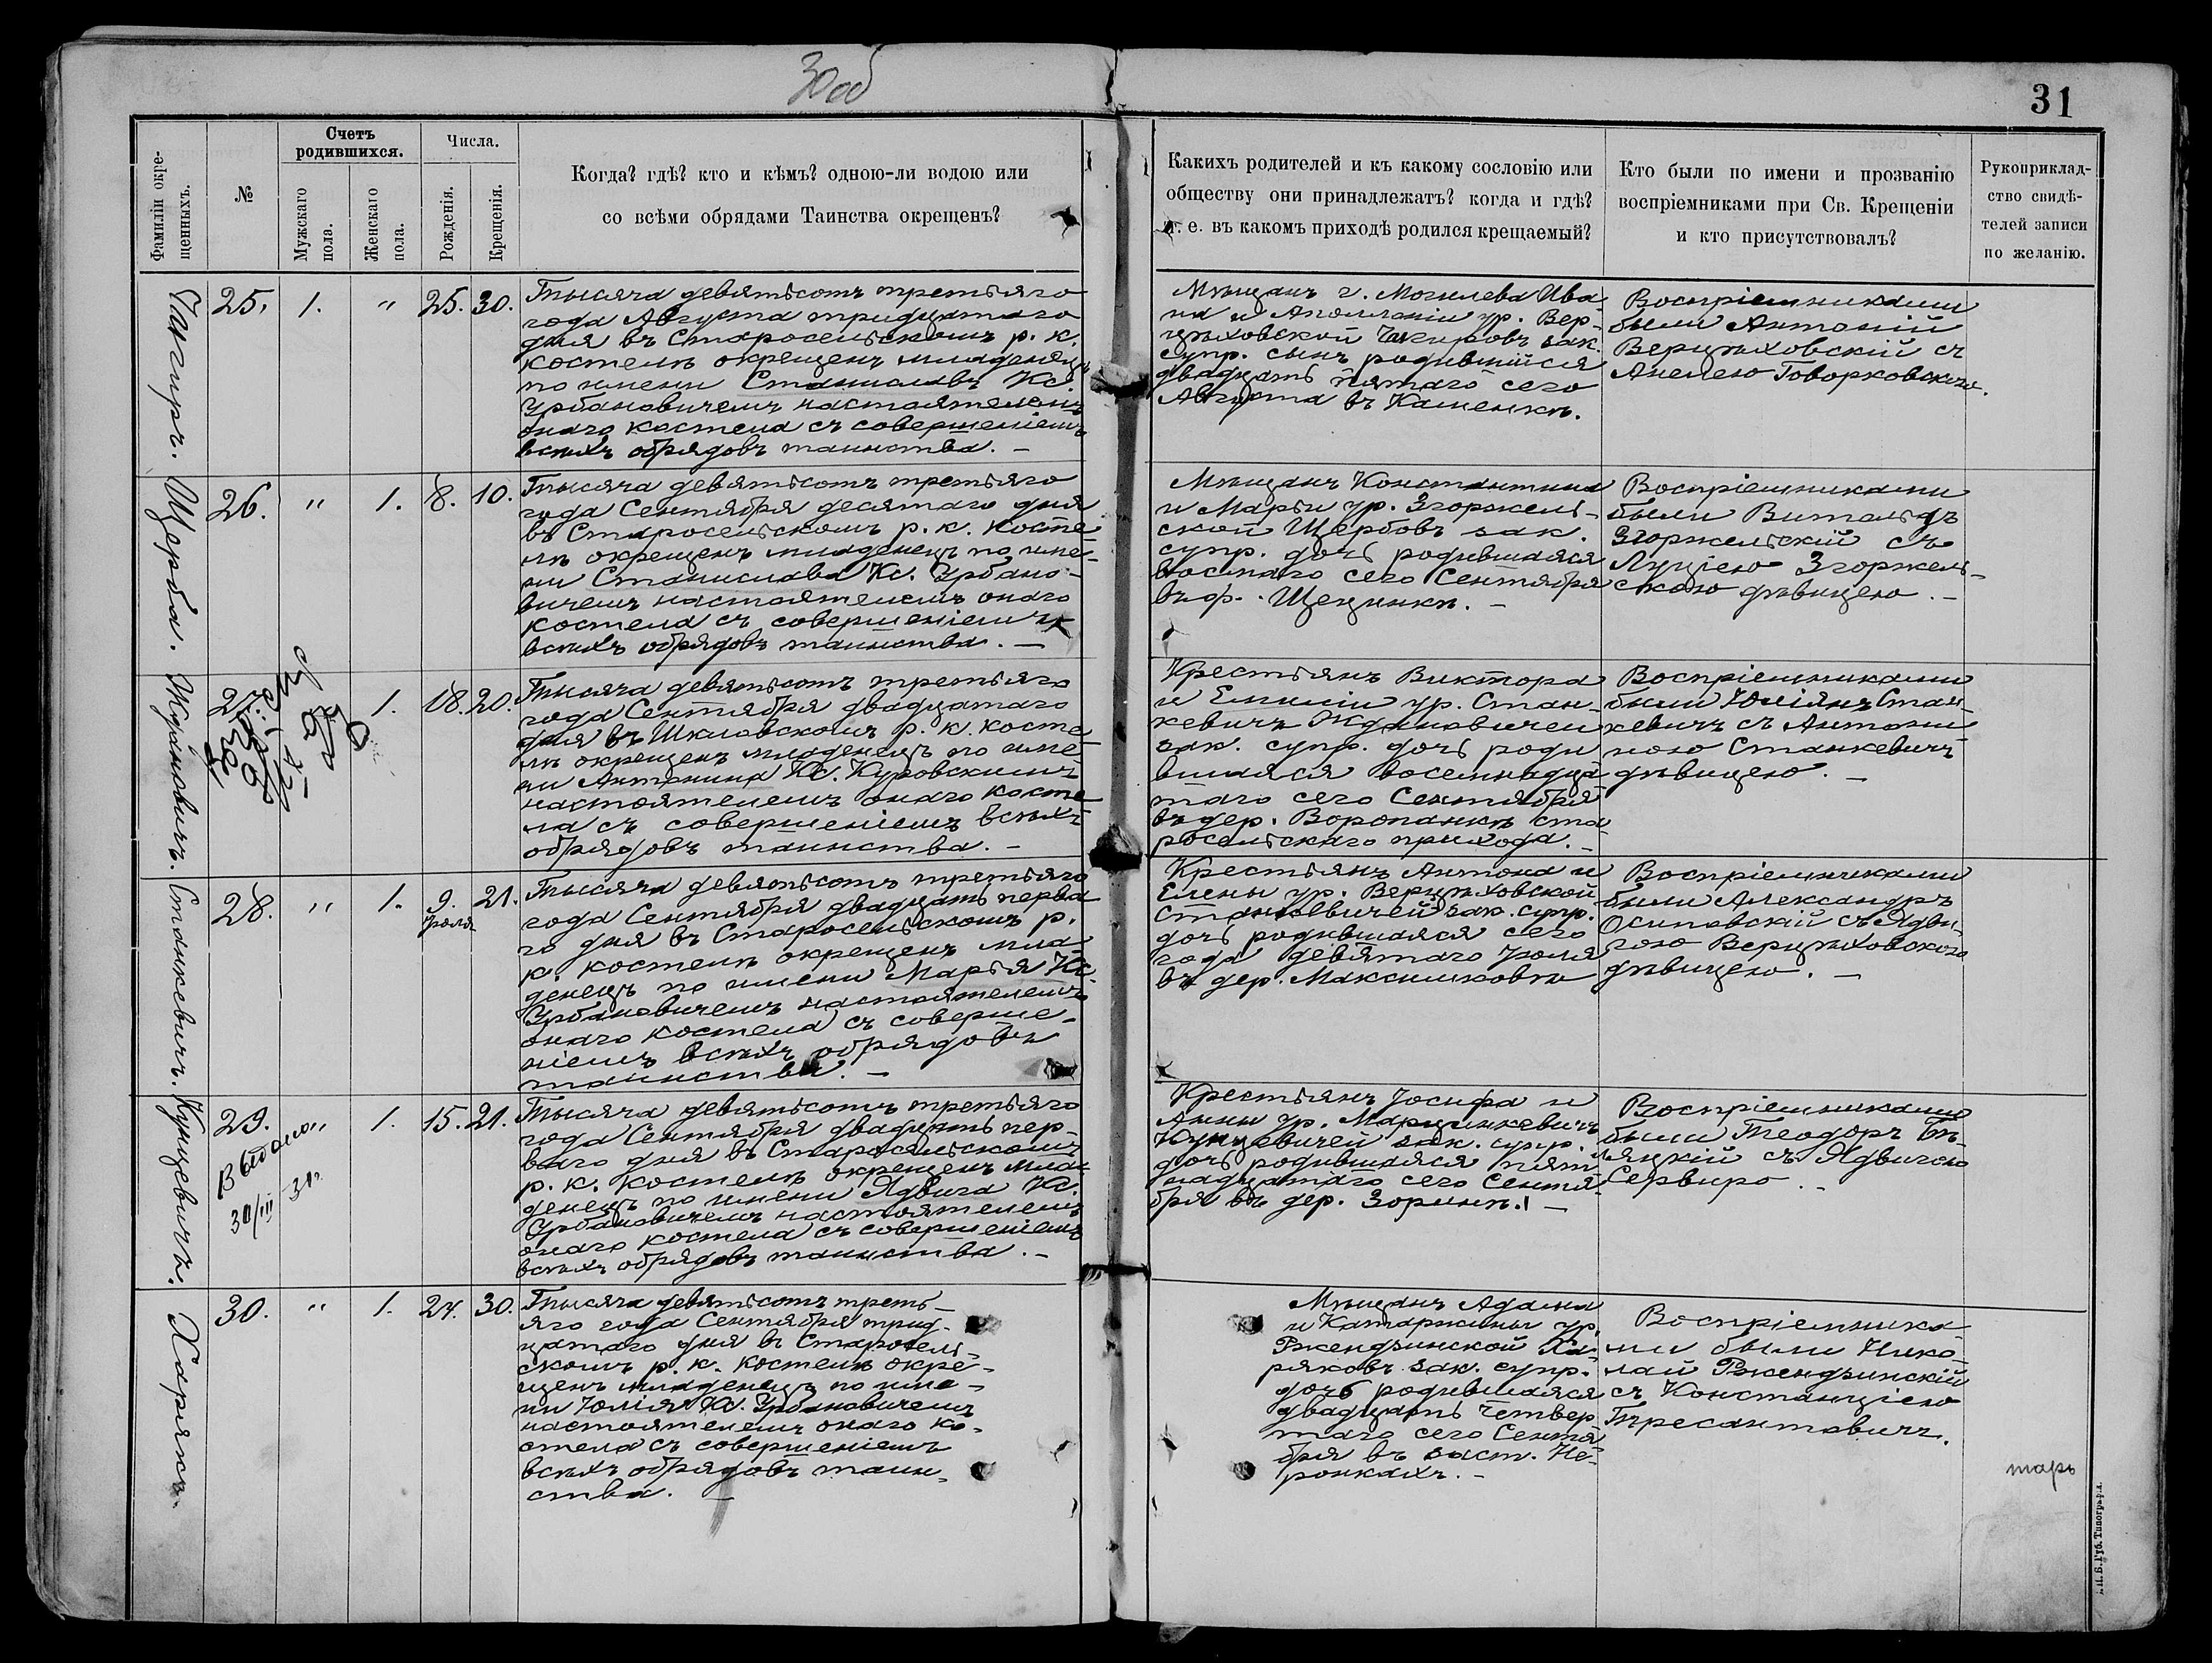 30 об
31
Фамиліи окре-
щенныхъ.
№
Счетъ
родившихся.
Мужскаго
пола.
Женскаго
пола.
Числа.
Рожденія.
Крещенія.
Когда? гдѣ? кто и кѣмъ? одною-ли водою или
со всѣми обрядами Таинства окрещенъ?
Какихъ родителей и къ какому сословію или
обществу они принадлежатъ? когда и гдѣ?
т. е. въ какомъ приходѣ родился крещаемый?
Кто были по имени и прозванію
воспріемниками при Св. Крещеніи
и кто присутствовалъ?
Рукоприклад-
ство свидѣ-
телей записи
по желанію.
25. 1. " 25. 30.
Тысяча девятьсотъ третьяго
года Августа тридцатаго
дня въ Старосельскомъ р. к.
костелѣ окрещенъ младенецъ
по имени Станиславъ Кс.
Урбановичемъ настоятелемъ
онаго костела съ совершеніемъ
всѣхъ обрядовъ таинства. —
Мѣщанъ г. Могилева Ива
на и Аполоніи ур. Вер-
цѣховской зак.
супр. сынъ родившійся
двадцать пятаго сего
Августа въ Каменкѣ.
Воспріемниками
были Антоній
Верцѣховскій съ
Анелею Говорковскою.
Щерба.
26. " 1. 8. 10.
Тысяча девятьсотъ третьяго
года Сентября десятаго дня
въ Старосельскомъ р. к. косте-
лѣ окрещенъ младенецъ по име-
ни Станислава Кс. Урбано-
вичемъ настоятелемъ онаго
костела съ совершеніемъ
всѣхъ обрядовъ таинства. —
Мѣщанъ Константина
и Марьи ур. Згоржель-
ской Щербовъ зак.
супр. дочь родившаяся
восьмаго сего Сентября
въ ф. Щецинкѣ. —
Воспріемниками
были Витольдъ
Згоржельскій съ
Луціею Згоржель-
скою дѣвицею. —
Ждановичъ.
27. 1. 18. 20.
Тысяча девятьсотъ третьяго
года Сентября двадцатаго
дня въ Шкловскомъ р. к. косте
лѣ окрещенъ младенецъ по име-
ни Антонина Кс. Куровскимъ
настоятелемъ онаго косте
ла съ совершеніемъ всѣхъ
обрядовъ таинства. —
Крестьянъ Виктора
и Емиліи ур. Стан-
кевичъ Ждановичей
зак. супр. дочь роди
вшаяся восемнадца
таго сего Сентября
въ дер. Воропанкѣ Ста-
росельскаго прихода. —
Воспріемниками
были Юліянъ Стан-
кевичъ съ Антони
ною Станкевичъ
дѣвицею. —
Станкевичъ.
28. " 1. 9. 21.
Іюля
Тысяча девятьсотъ третьяго
года Сентября двадцать перва
го дня въ Старосельскомъ р.
к. костелѣ окрещенъ мла-
денецъ по имени Марья Кс.
Урбановичемъ настоятелемъ
онаго костела съ соверше-
ніемъ всѣхъ обрядовъ
таинства. —
Крестьянъ Антона и
Елены ур. Верцѣховской
Станкевичей зак. супр.
дочь родившаяся сего
года девятаго Іюля
въ дер. Максимковѣ
Воспріемниками
были Александръ
Осиповскій съ Ядви-
гою Верцѣховскою
дѣвицею. —
Кунцевичъ.
29. " 1. 15. 21.
Выдано
30/III 31.
Тысяча девятьсотъ третьяго
года Сентября двадцать пер-
ваго дня въ Старосельскомъ
р. к. костелѣ окрещенъ мла-
денецъ по имени Ядвига Кс.
Урбановичемъ настоятелемъ
онаго костела съ совершеніемъ
всѣхъ обрядовъ таинства. —
Крестьянъ Іосифа и
Анны ур. Марцинкевичъ
Кунцевичей зак. супр.
дочь родившаяся пят-
надцатаго сего Сентя-
бря въ дер. Зоринѣ. —
Воспріемниками
были Теодоръ
съ Ядвигою
Сервиро. —
Харякъ.
30. " 1. 24. 30.
Тысяча девятьсотъ треть-
яго года Сентября трид-
цатаго дня въ Старосель-
скомъ р. к. костелѣ окре-
щенъ младенецъ по име-
ни Юлія Кс. Урбановичемъ
настоятелемъ онаго ко-
стела съ совершеніемъ
всѣхъ обрядовъ таин-
ства. —
Мѣщанъ Адама
и Катаржины ур.
Ржендзинской Ха-
ряковъ зак. супр.
дочь родившаяся
двадцать четвер
таго сего Сентя-
бря въ заст. Не-
ронкахъ. —
Воспріемника-
ми были Нико-
лай Ржендзинскій
съ Констанціею
тарь